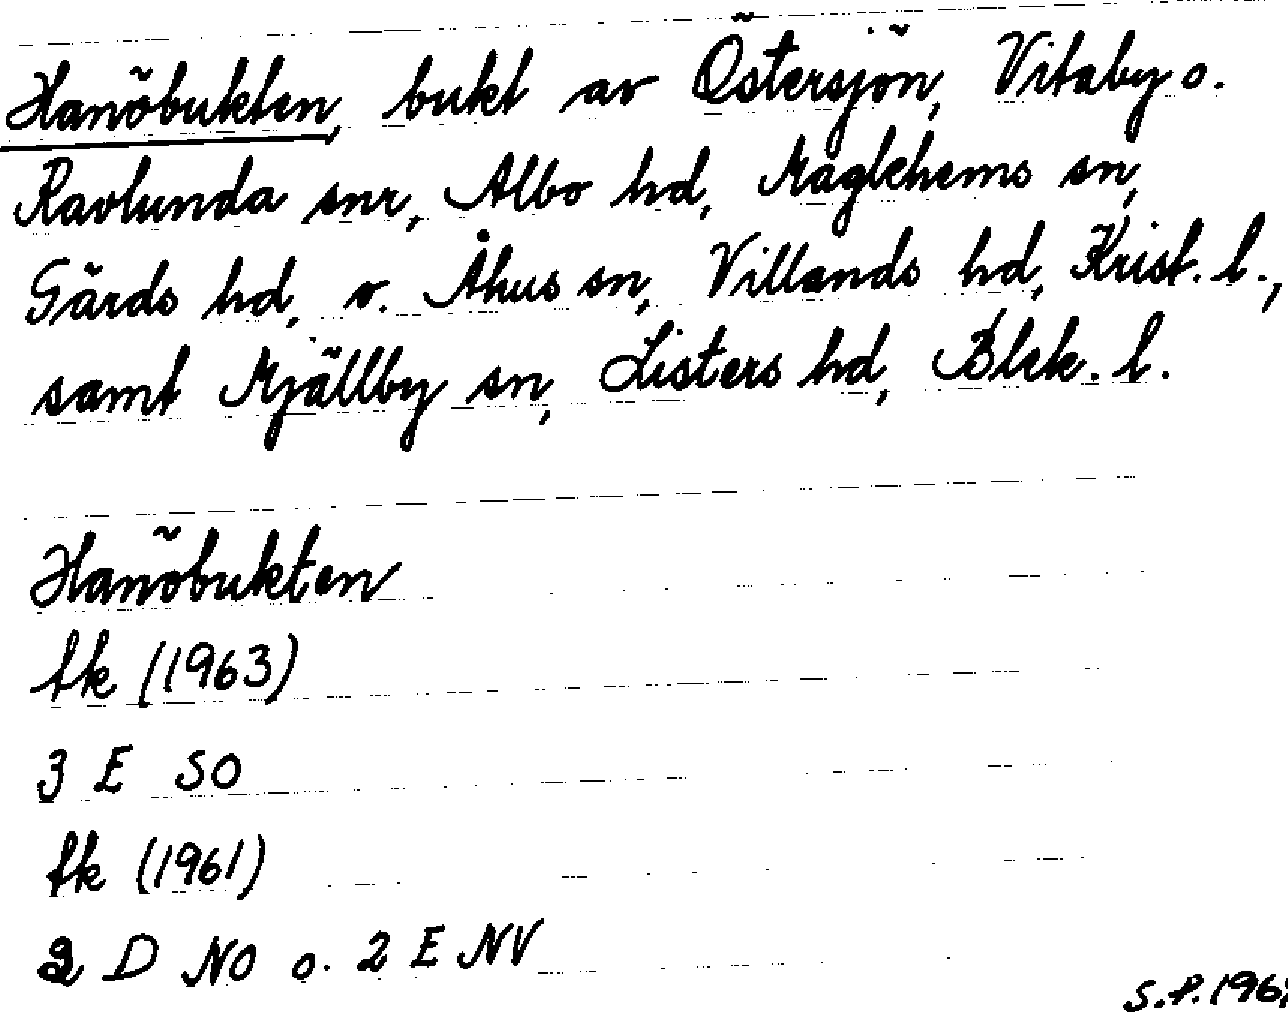 Hanöbukten, bukt av Östersjön, Vitaby o.
Ravlunda snr, Albo hd, Maglehems sn,
Gärds hd, o. Åhus sn, Villands hd, Krist. l.,
samt Mjällby sn, Listers hd, Blek. l.
Hanöbukten
fk (1963)
3 E SO
fk (1961)
2 D NO o. 2 E NV
S.P.